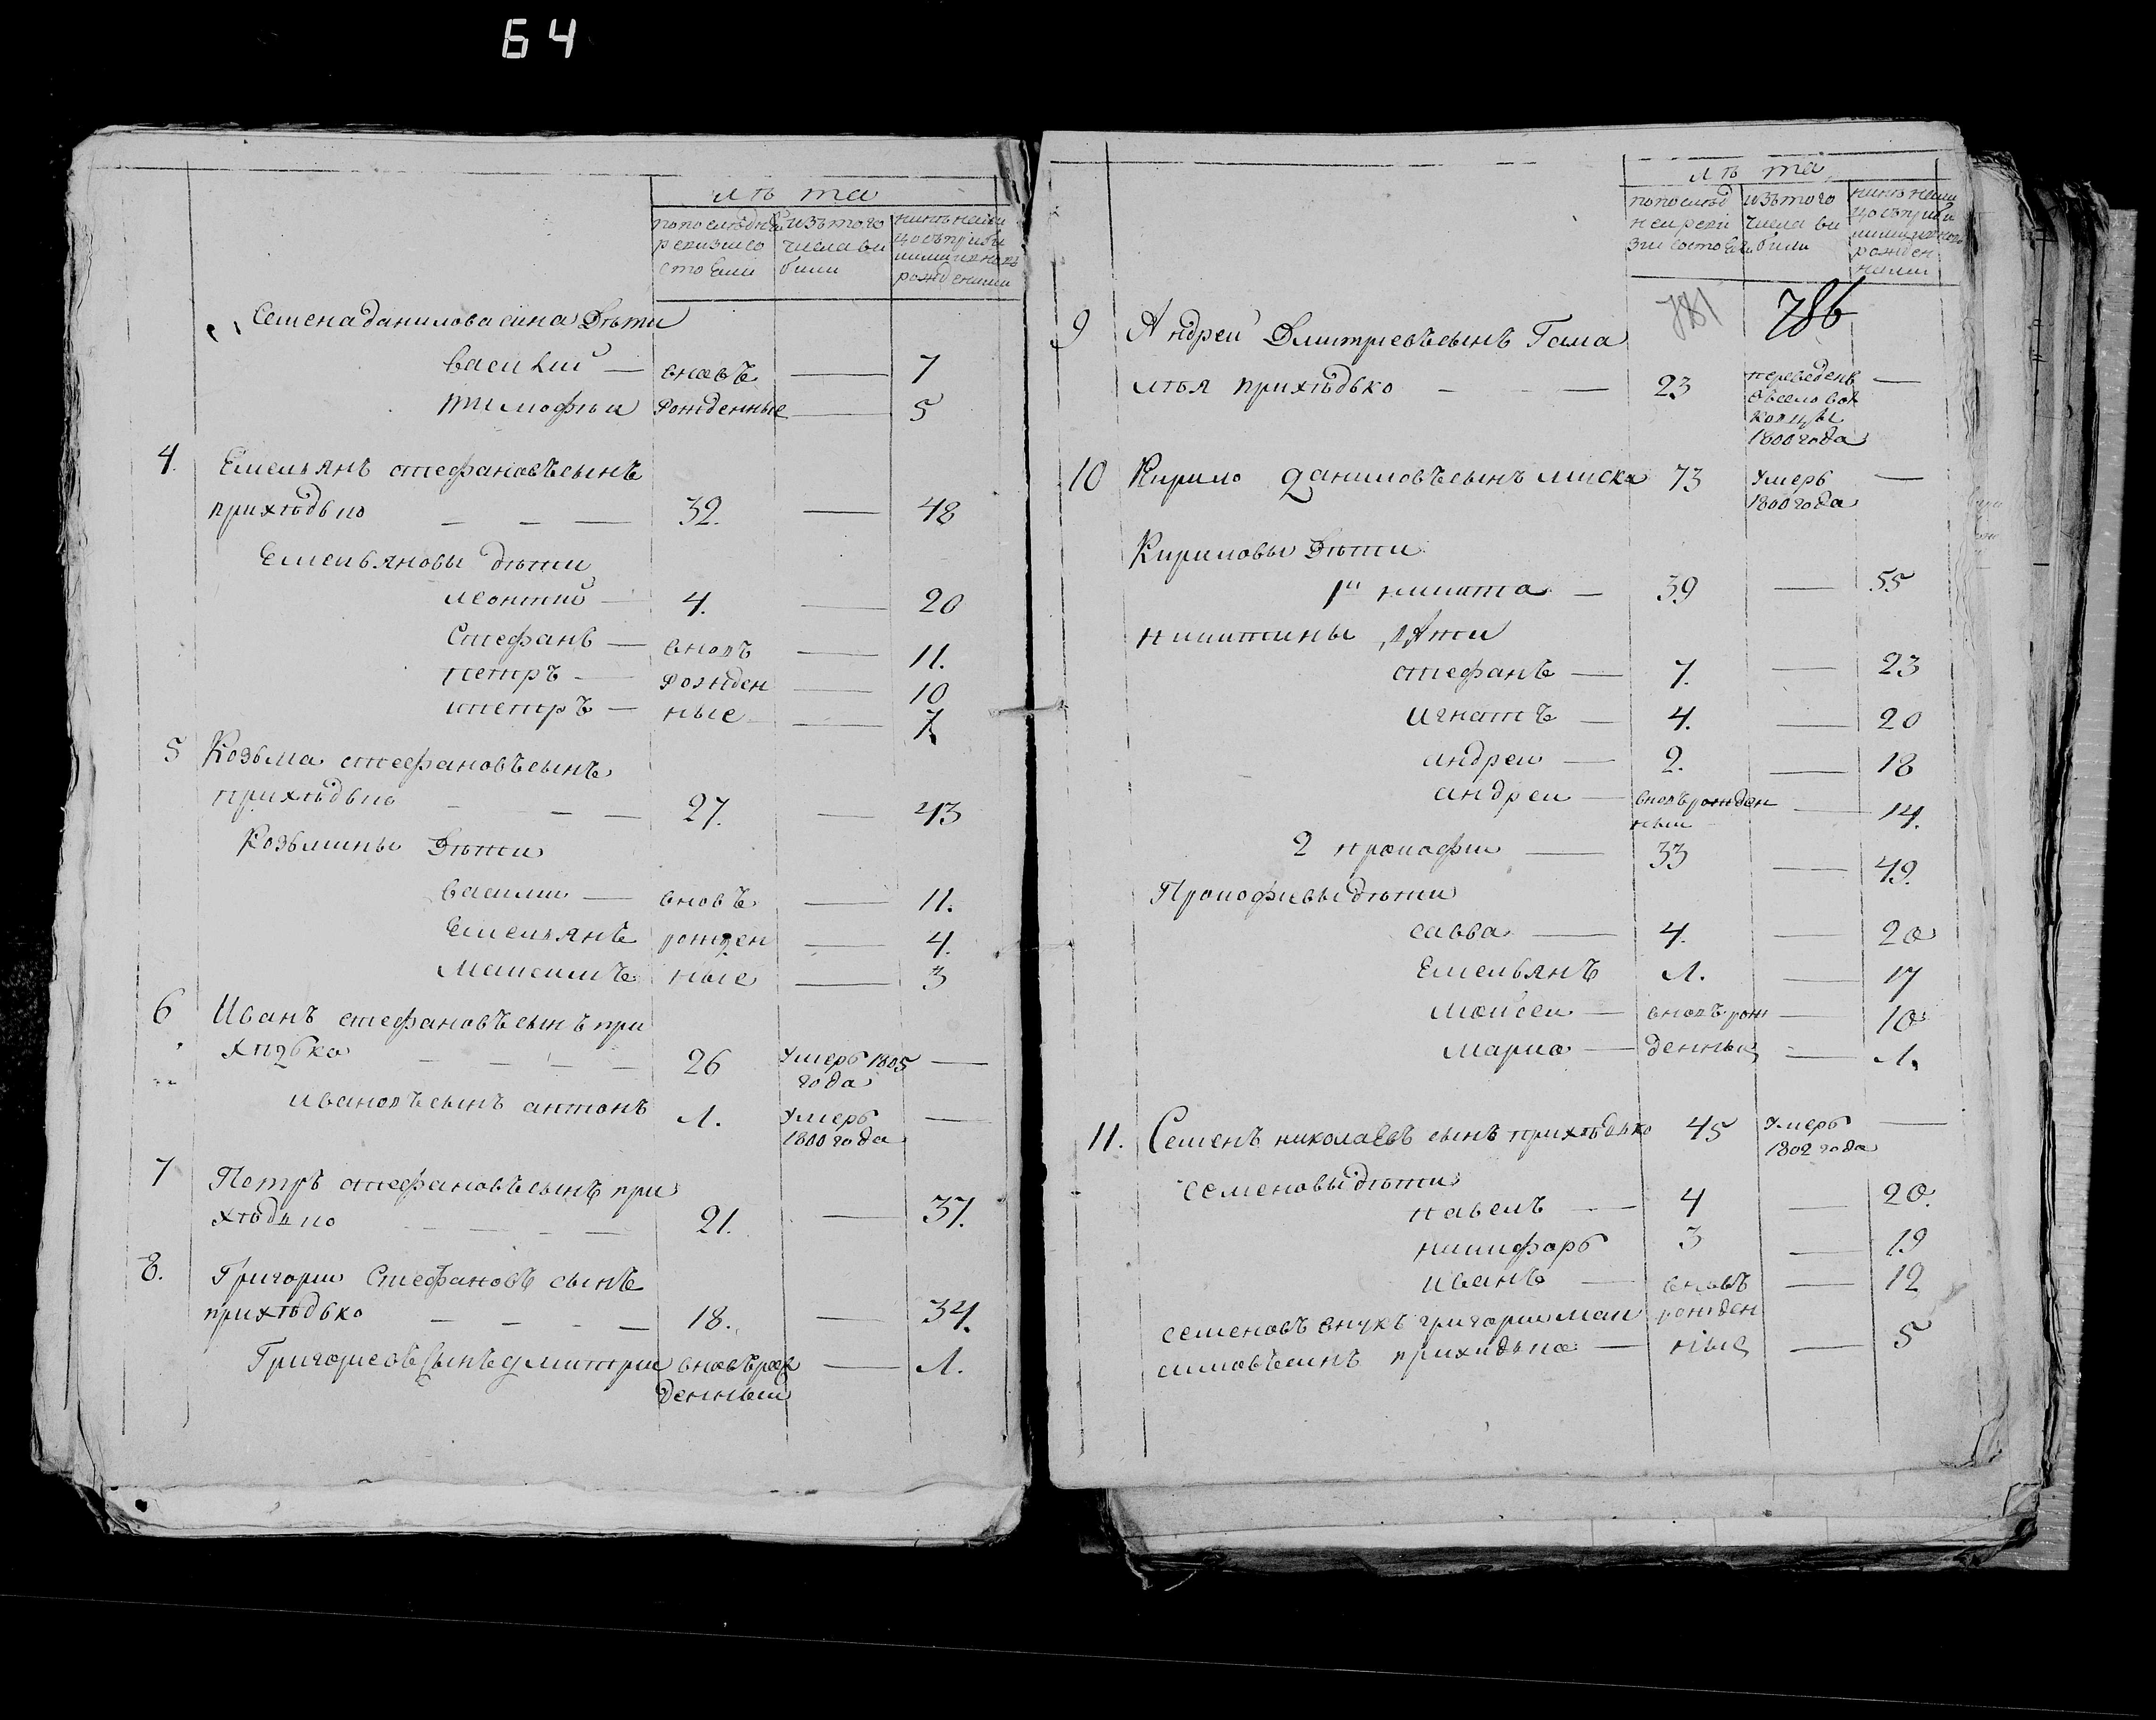 64
лѣта
попоследней ревизии состояли
изътого числа выбыли
нынѣ налицо съприбылыми и вновь рожденными
Семена данилова сина Дѣти
василий — вновъ — 7
тимофѣи рожденные — 5
4. Емельянъ стефановъ сынъ
прихѣдько — — — 32. — 48
Емельяновы дѣти
леонтий — 4. — 20
Стефанъ — вновъ — 11.
петръ — рожден — 10
ипетръ — ные — 7
5 Козьма стефановъ сынъ
прихѣдько — — — 27. — 43
Козьмины Дѣти
василии — вновъ — 11.
Емельянъ рожден — 4.
Максимъ ные — 3
6 Иванъ стефановъ сынъ при
хѣдько — — — 26 Умеръ 1805 —
года
ивановъ сынъ антонъ 1. Умеръ —
1800 года
7 Петръ стефановъ сынъ при
хѣдько — — — 21. — 37.
8. Григории Стефановъ сынъ
прихѣдько — — — 18. — 34.
Григориевъ Сынъ дмитрии вновъ рож — 1.
денныи
лѣта
попослѣд ней реви зии состояли
изътого числа вы были
нынѣ нали цо съприбы лыми и вновь рожден ными
781 786
9 Андреи Дмитриевъ сынъ Гама
лѣя прихѣдько — — 23 переведенъ —
1800 года
10 Кирило Даниловъ сынъ лиска 73 Умеръ —
1800 года
Кириловы Дѣти
1й никита — 39 — 55
никитины дѣти
стефанъ — 7. — 23
игнатъ — 4. — 20
андреи — 2. — 18
андреи — вновърожден — 14.
ныи
2 прокофии — 33 — 49.
Прокофиевы дѣти
савва — 4. — 20
Емельянъ 1. — 17
моисеи — вновъ рож — 10
марко — денныи — 1.
11. Семенъ николаевъ сынъ прихѣдько 45 Умеръ —
1802 года
семеновы дѣти
павелъ — 4 — 20.
никифоръ 3 — 19
иванъ — вновъ — 12
семеновъ внукъ григории мак рожден
симовъ синъ прихидько — ные — 5